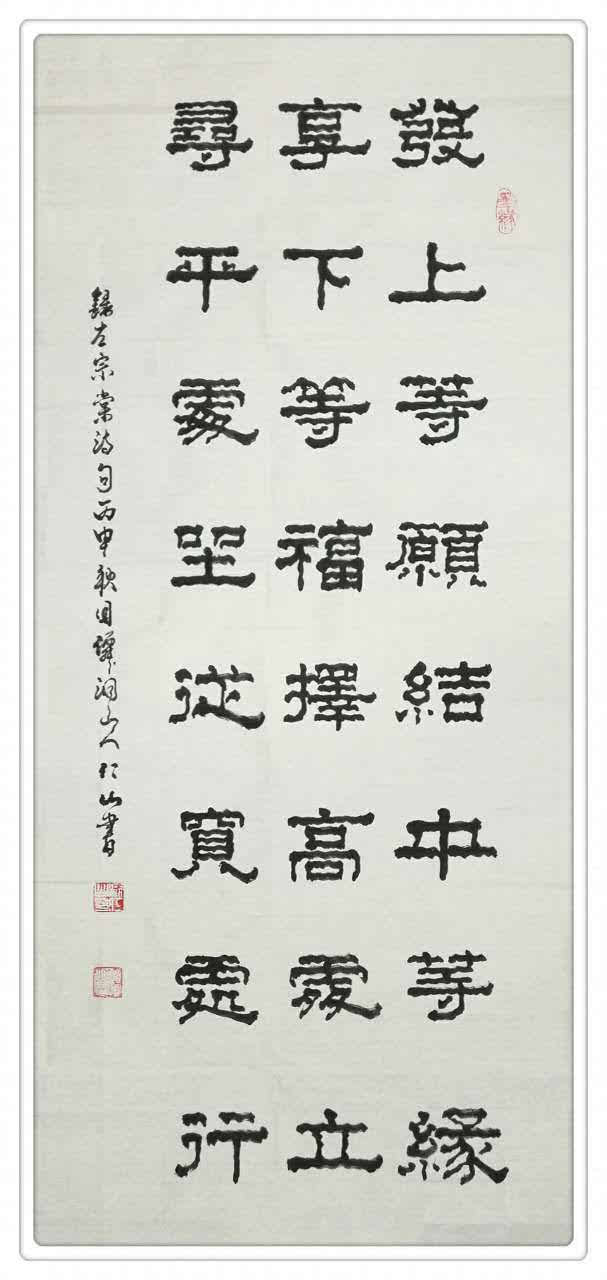 發上等願結中等緣
享下等福擇高處立
尋平處坐從寬處行
錄左宗棠詩句丙申秋月洞山人仁山書